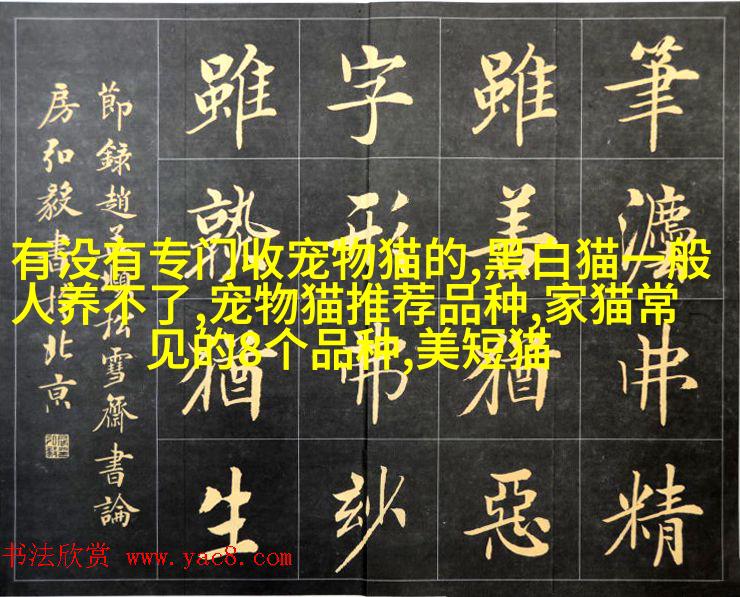 筆灋弗精
雖善猶惡
字形弗玅
雖孰猶生
節錄趙孟頫松雪齋書論
房弘毅書於北亰
有没有专门收宠物猫的,黑白猫一般
人养不了,宠物猫推荐品种,家猫常
见的8个品种,美短猫
书法欣赏 www.yac8.com